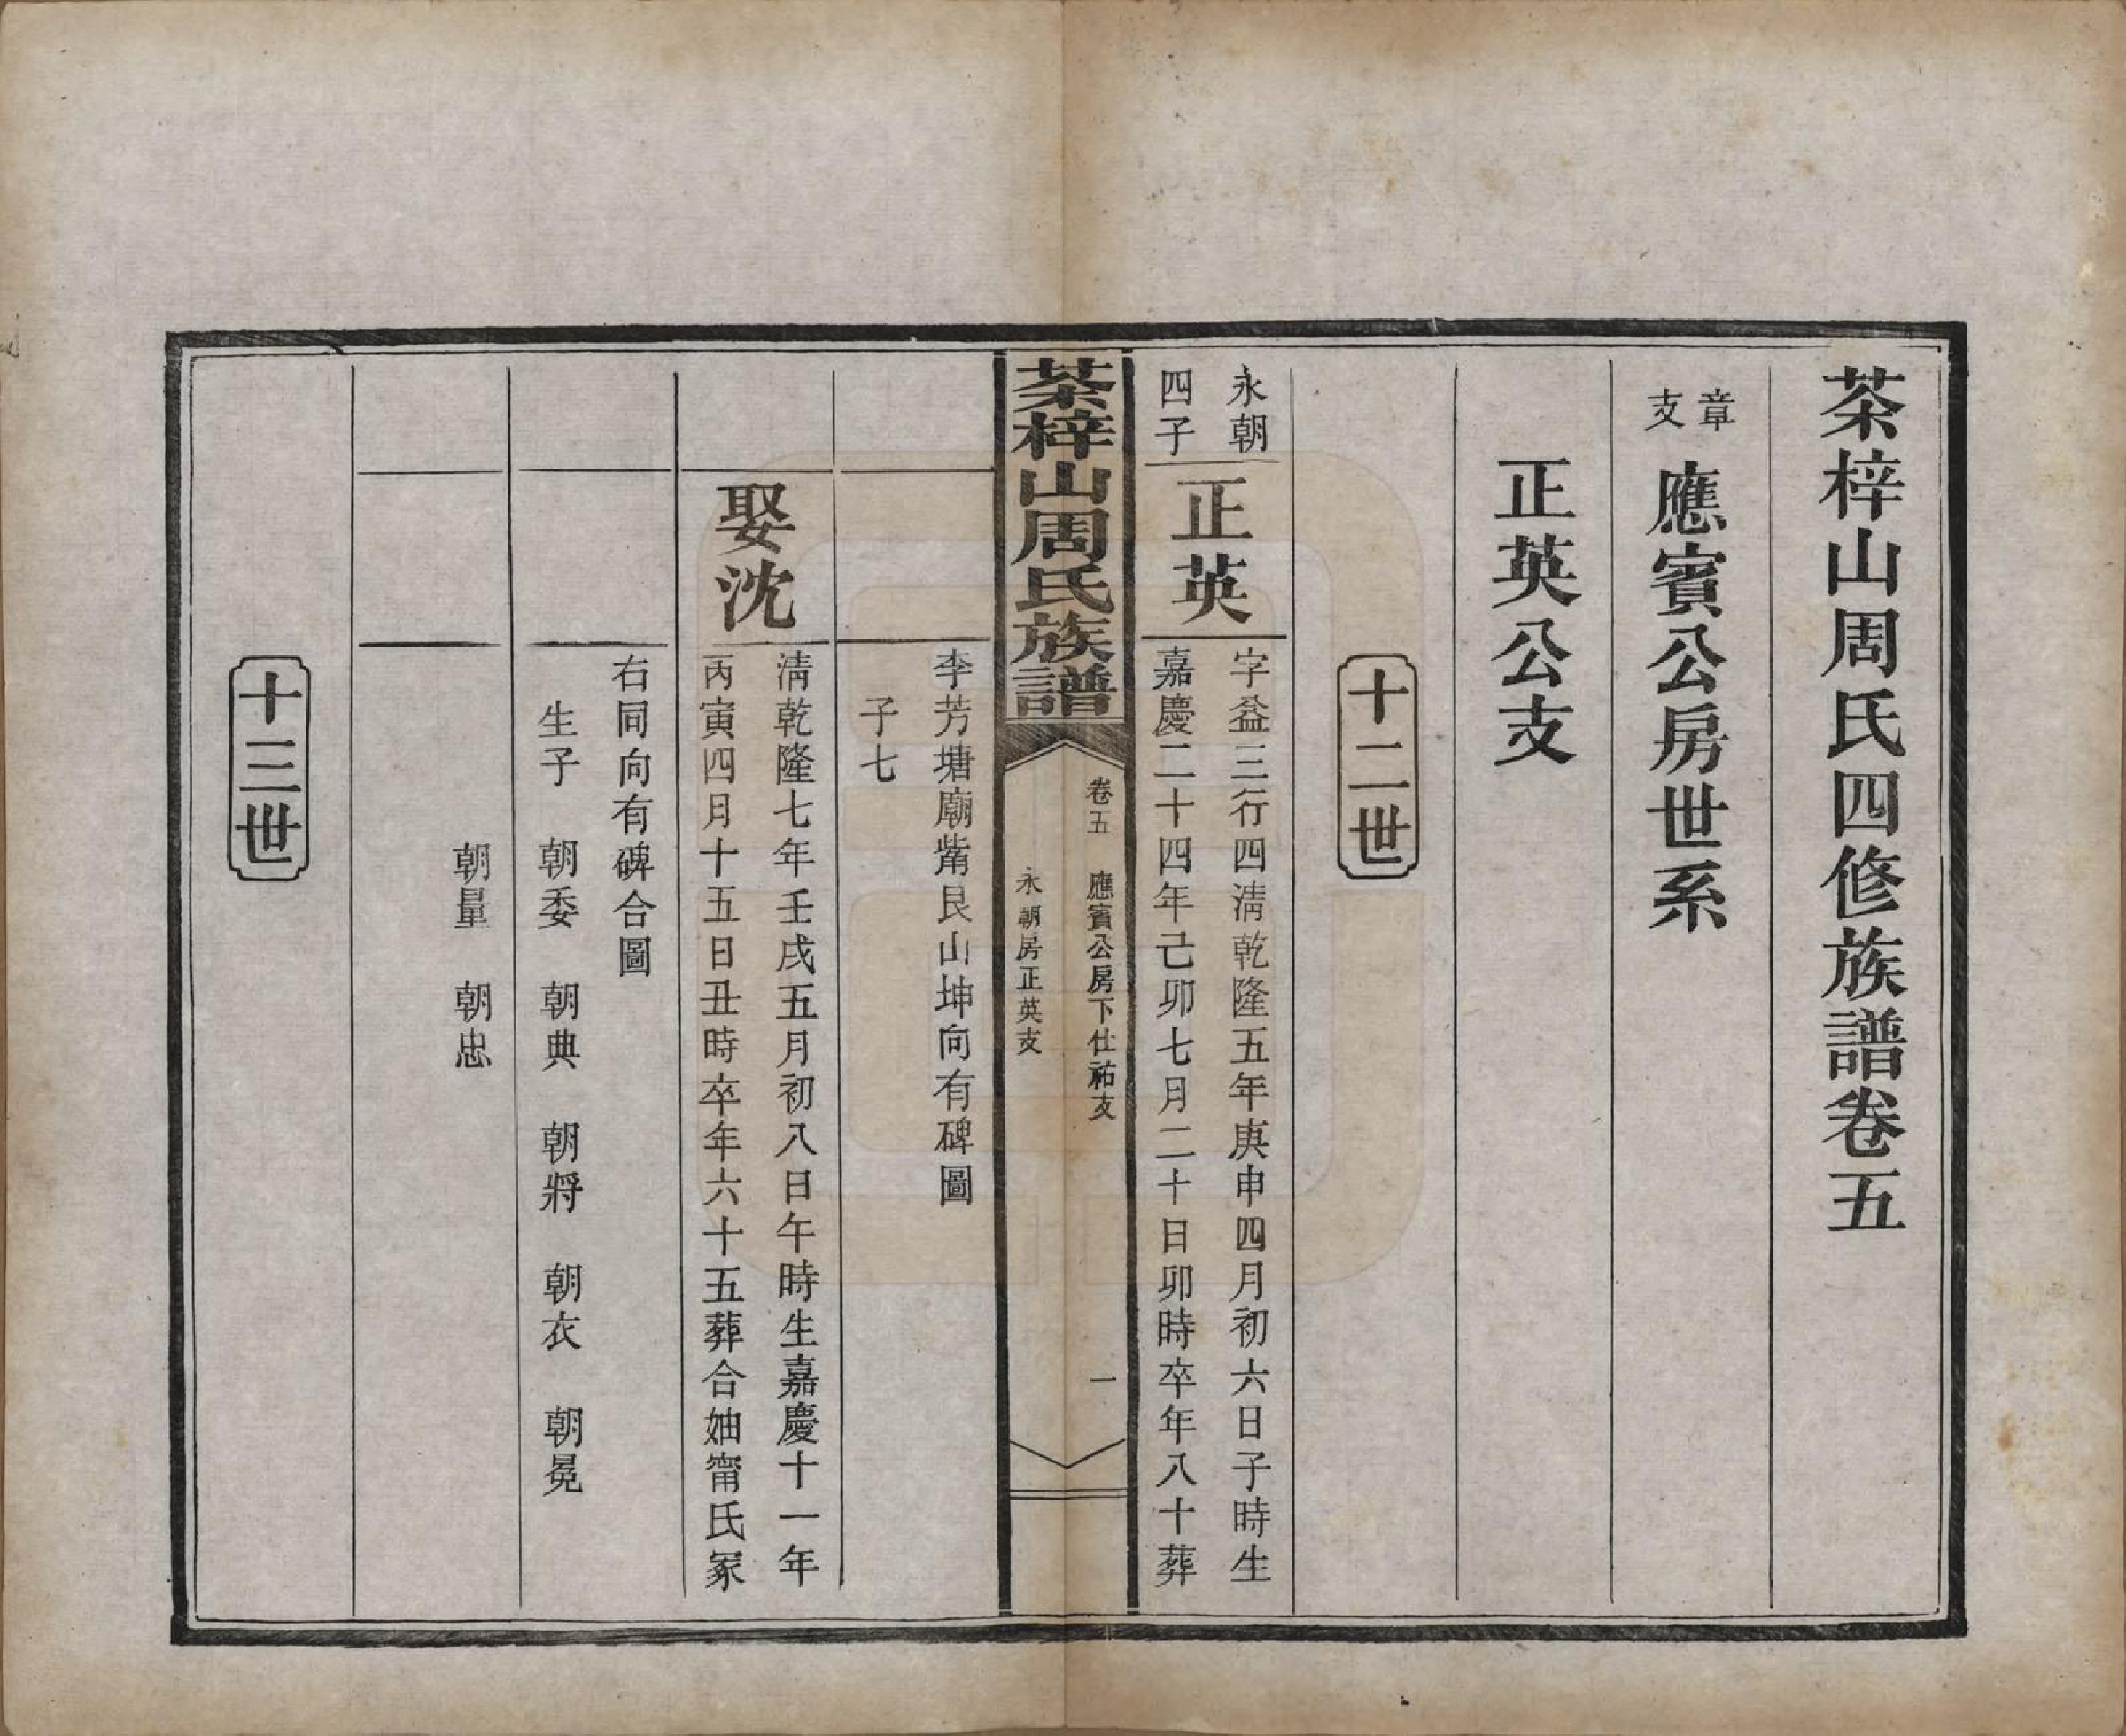 茶梓山周氏四修族譜卷五
章支
應賓公房世系
正英公支
十二世
永朝四子
正英
字益三行四淸乾隆五年庚申四月初六日子時生
嘉慶二十四年己卯七月二十日卯時卒年八十葬
茶梓山周氏族譜
卷五
應賓公房下仕祐支
永朝房正英支
一
李芳塘廟觜艮山坤向有碑圖
子七
娶沈
淸乾隆七年壬戌五月初八日午時生嘉慶十一年
丙寅四月十五日丑時卒年六十五葬合妯甯氏冢
右同向有碑合圖
生子 朝委 朝典 朝將 朝衣 朝冕
朝量 朝忠
十三世